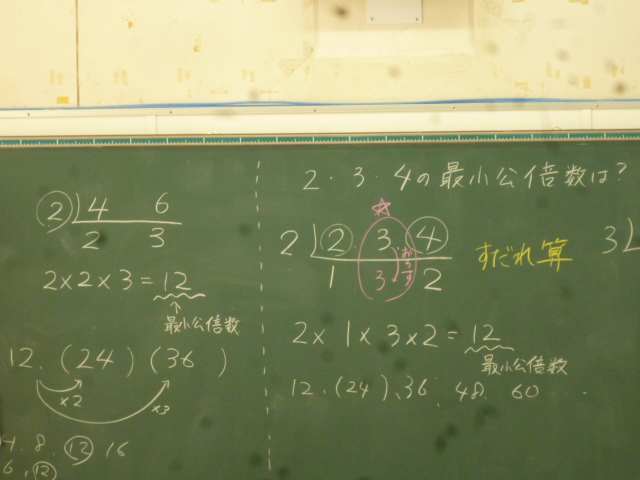 2) 4 6
2 3
2×2×3=12
↑
最小公倍数
12. (24) (36 )
×2
×3
4. 8. 12 16
6. 12
2・3・4の最小公倍数は?
2) 2. 3 4
☆
おろす
1 3 2
すだれ算
2×1×3×2=12
最小公倍数
12. (24)、36. 48. 60 . .
3)